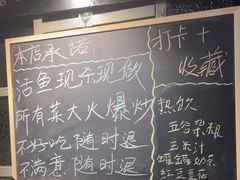 本店承诺:
活鱼现杀现做
所有菜大火爆炒
不好吃随时退
不满意随时退
打卡+
收藏
热饮
五谷杂粮
玉米汁
罐罐奶茶
红豆豆花